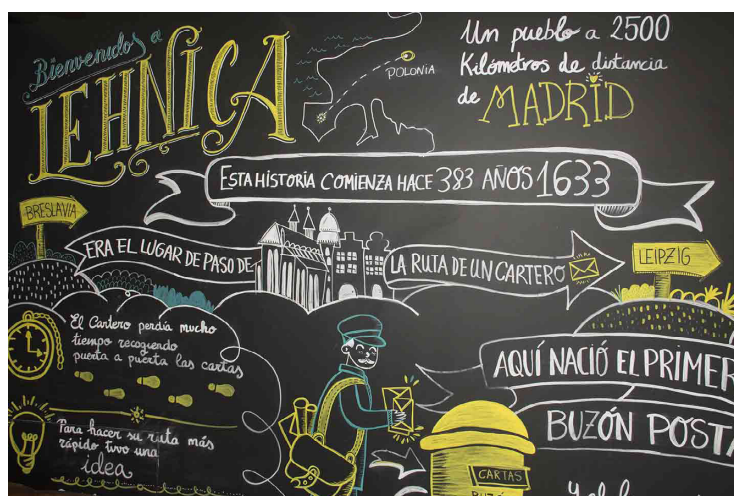 Bienvenidos a
LEHNICA
POLONIA
Un pueblo a 2500
Kilómetros de distancia
de MADRID
ESTA HISTORIA COMIENZA HACE 383 AÑOS 1633
BRESLAVIA
ERA EL LUGAR DE PASO DE
LA RUTA DE UN CARTERO
LEIPZIG
El Cartero perdía mucho
tiempo recogiendo
puerta a puerta las cartas
Para hacer su ruta más
rápido tuvo una
idea
AQUÍ NACIÓ EL PRIMER
BUZÓN POSTA
CARTAS